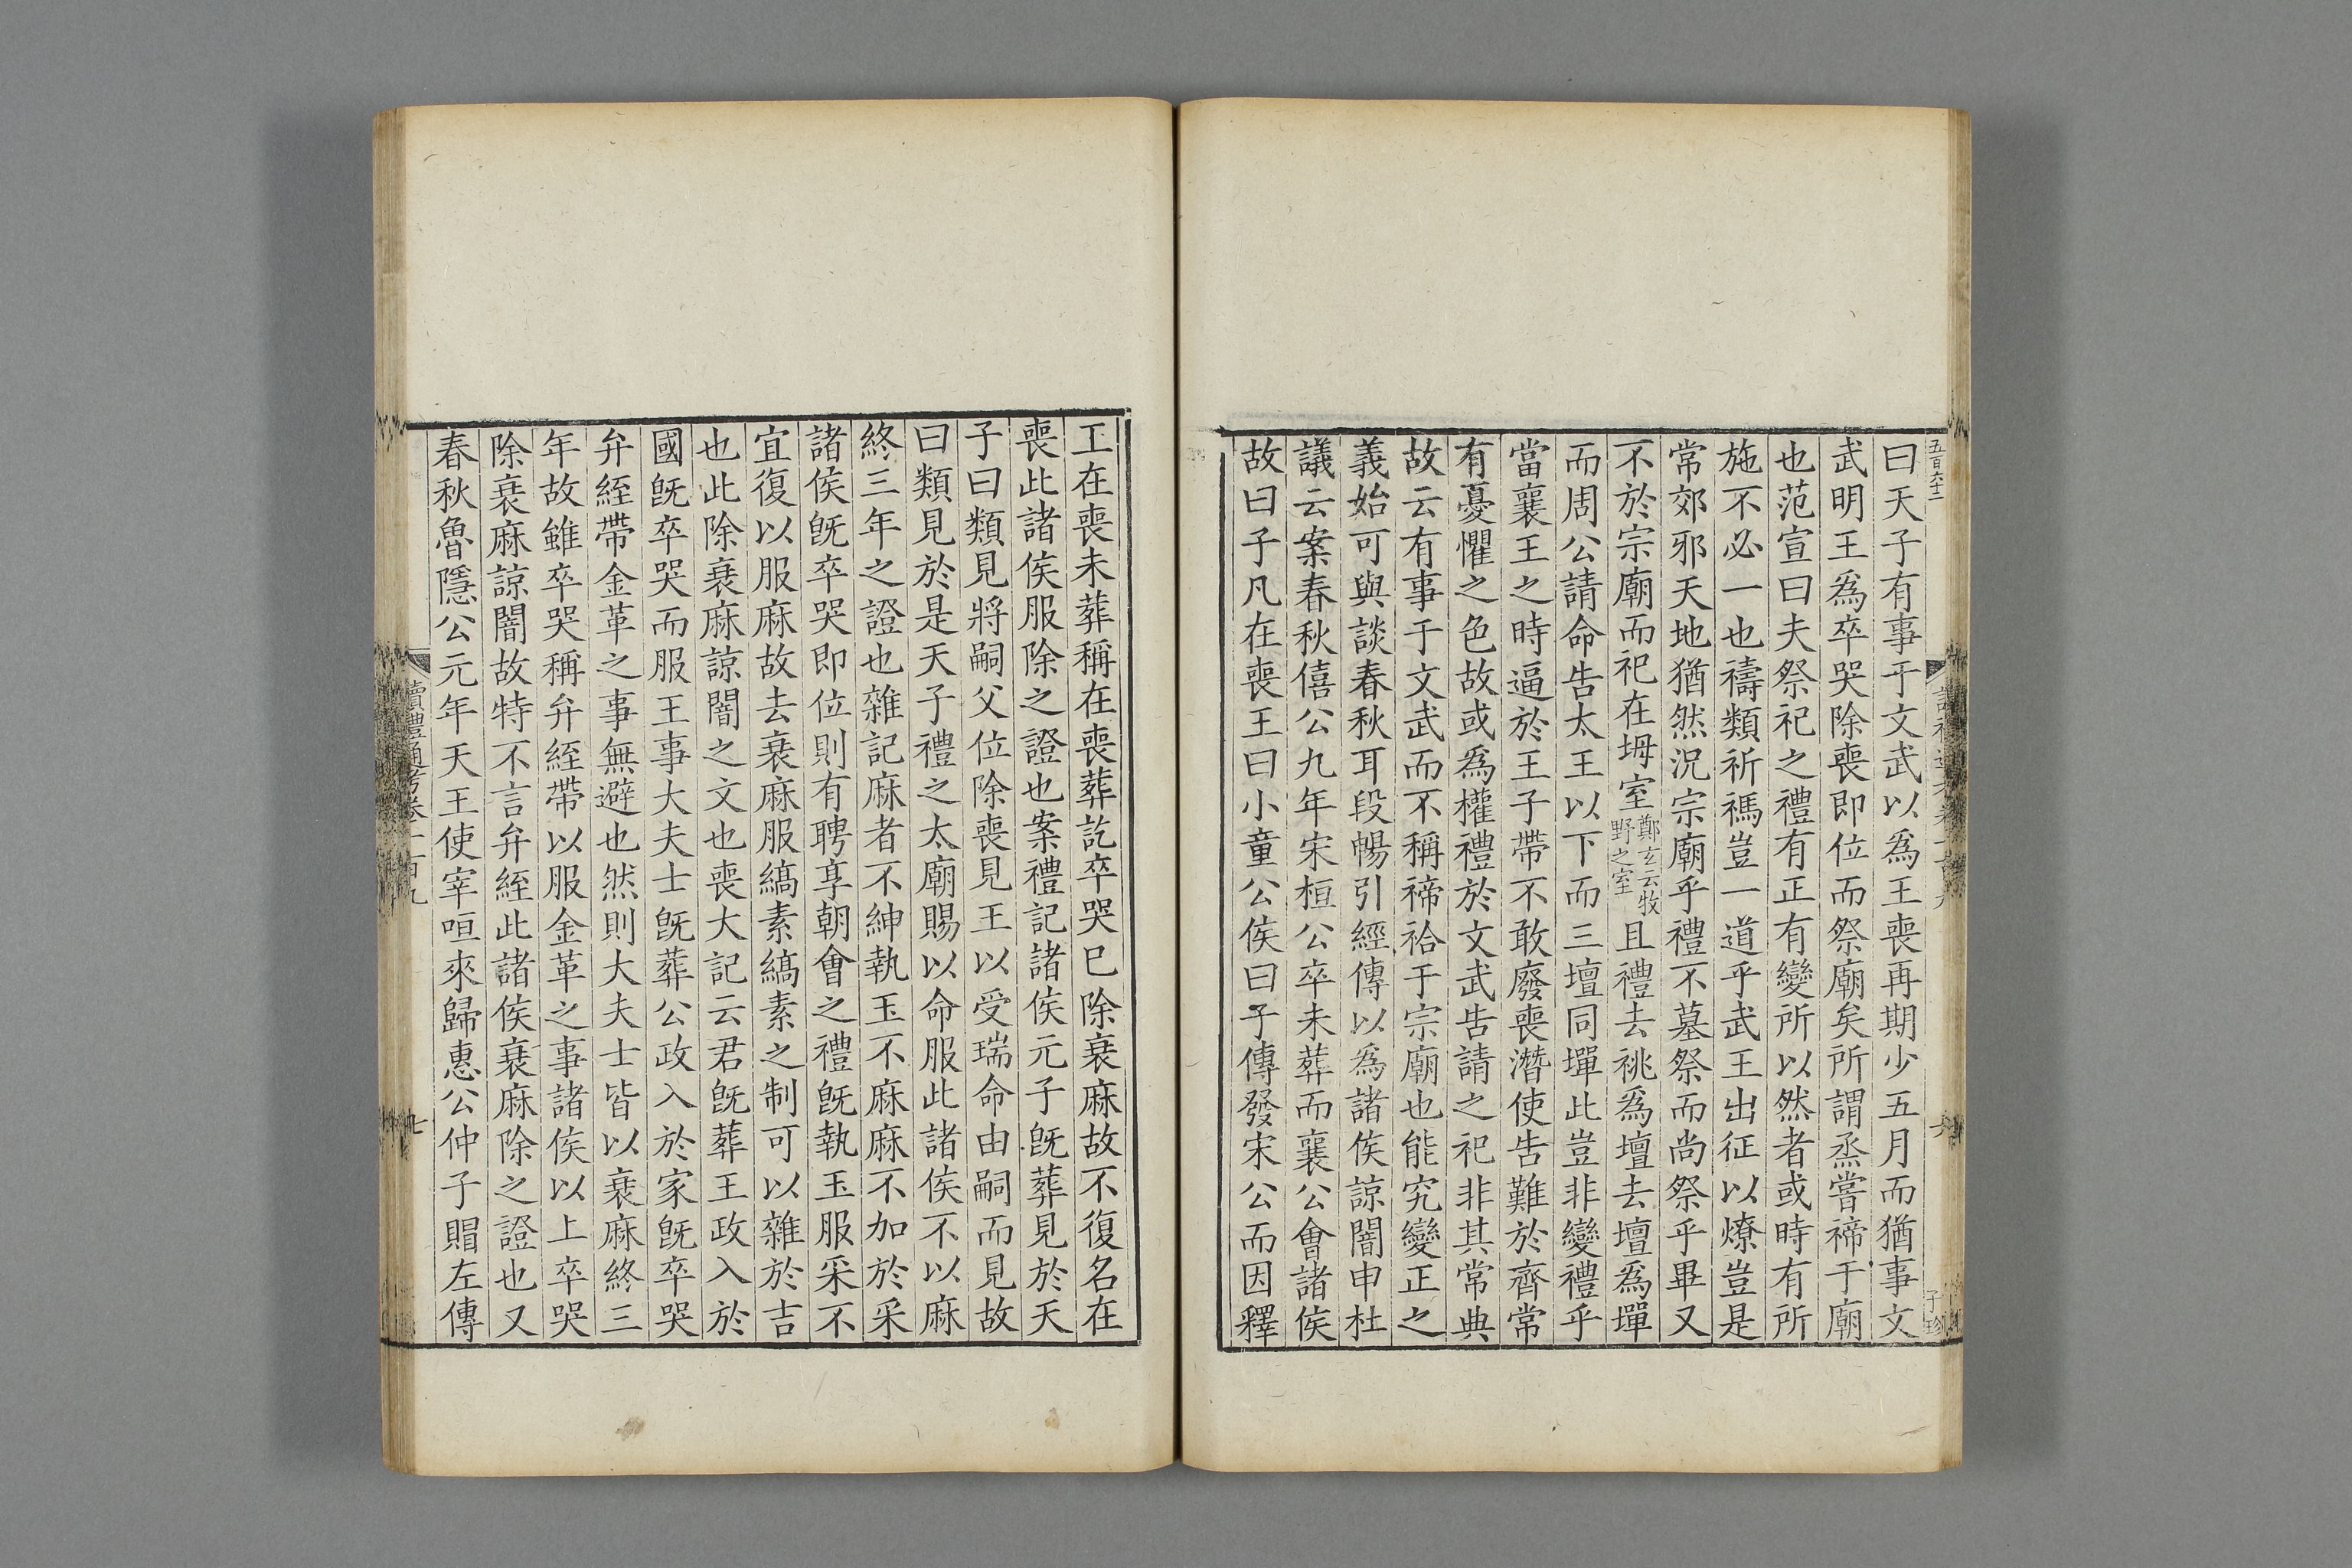 五百六十二
曰天子有事于文武以爲王喪再期少五月而猶事文
武明王爲卒哭除喪即位而祭廟矣所謂烝嘗禘于廟
也范宣曰夫祭祀之禮有正有變所以然者或時有所
施不必一也禱類祈禡豈一道乎武王出征以燎豈是
常郊邪天地猶然況宗廟乎禮不墓祭而尚祭乎畢又
不於宗廟而祀在坶室鄭玄云牧野之室且禮去祧爲壇去壇爲墠
而周公請命告太王以下而三壇同墠此豈非變禮乎
當襄王之時逼於王子帶不敢廢喪潛使告難於齊常
有憂懼之色故或爲權禮於文武告請之祀非其常典
故云有事于文武而不稱禘祫于宗廟也能究變正之
義始可與談春秋耳段暢引經傳以爲諸侯諒闇申杜
議云案春秋僖公九年宋桓公卒未葬而襄公會諸侯
故曰子凡在喪王曰小童公侯曰子傳發宋公而因釋
六
子珍
王在喪未葬稱在喪葬訖卒哭已除衰麻故不復名在
喪此諸侯服除之證也案禮記諸侯元子旣葬見於天
子曰類見將嗣父位除喪見王以受瑞命由嗣而見故
曰類見於是天子禮之太廟賜以命服此諸侯不以麻
終三年之證也雜記麻者不紳執玉不麻麻不加於采
諸侯旣卒哭即位則有聘享朝會之禮旣執玉服采不
宜復以服麻故去衰麻服縞素縞素之制可以雜於吉
也此除衰麻諒闇之文也喪大記云君旣葬王政入於
國旣卒哭而服王事大夫士旣葬公政入於家旣卒哭
弁絰帶金革之事無避也然則大夫士皆以衰麻終三
年故雖卒哭稱弁絰帶以服金革之事諸侯以上卒哭
除衰麻諒闇故特不言弁絰此諸侯衰麻除之證也又
春秋魯隱公元年天王使宰咺來歸惠公仲子賵左傳
讀禮通考卷一百九
七